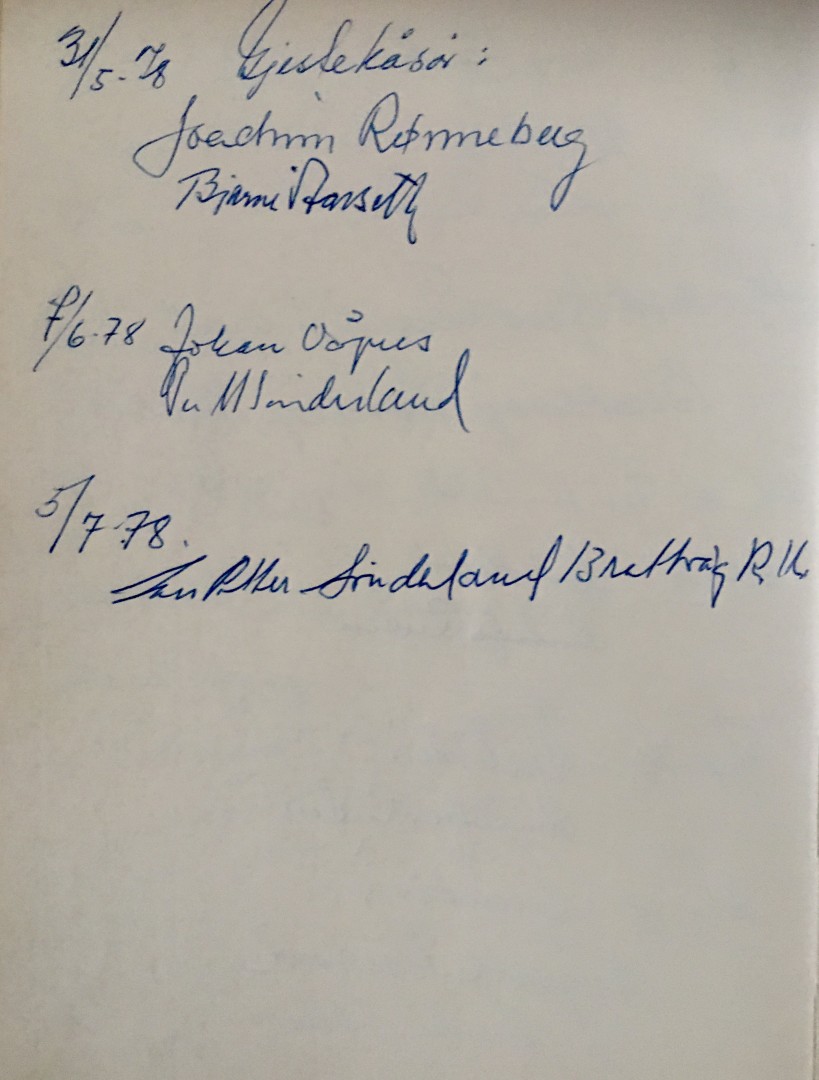 31/5-78 Gjestekåsør:
Joachim Rønneberg
Bjarne Aarseth
7/6-78 Johan Vågnes
Per M Sønderland
5/7-78.
Jan Petter Sønderland Brattvåg R.K.